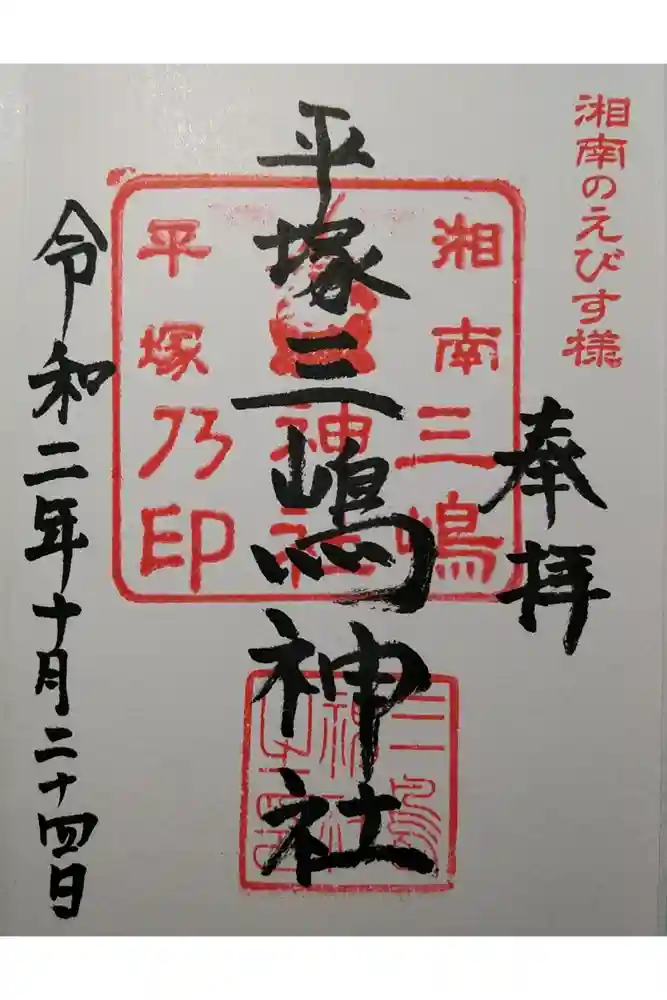 湘南のえびす様
奉拝
平塚三嶋神社
湘南三嶋
神社
平塚乃印
三嶋
神社
令和二年十月二十四日